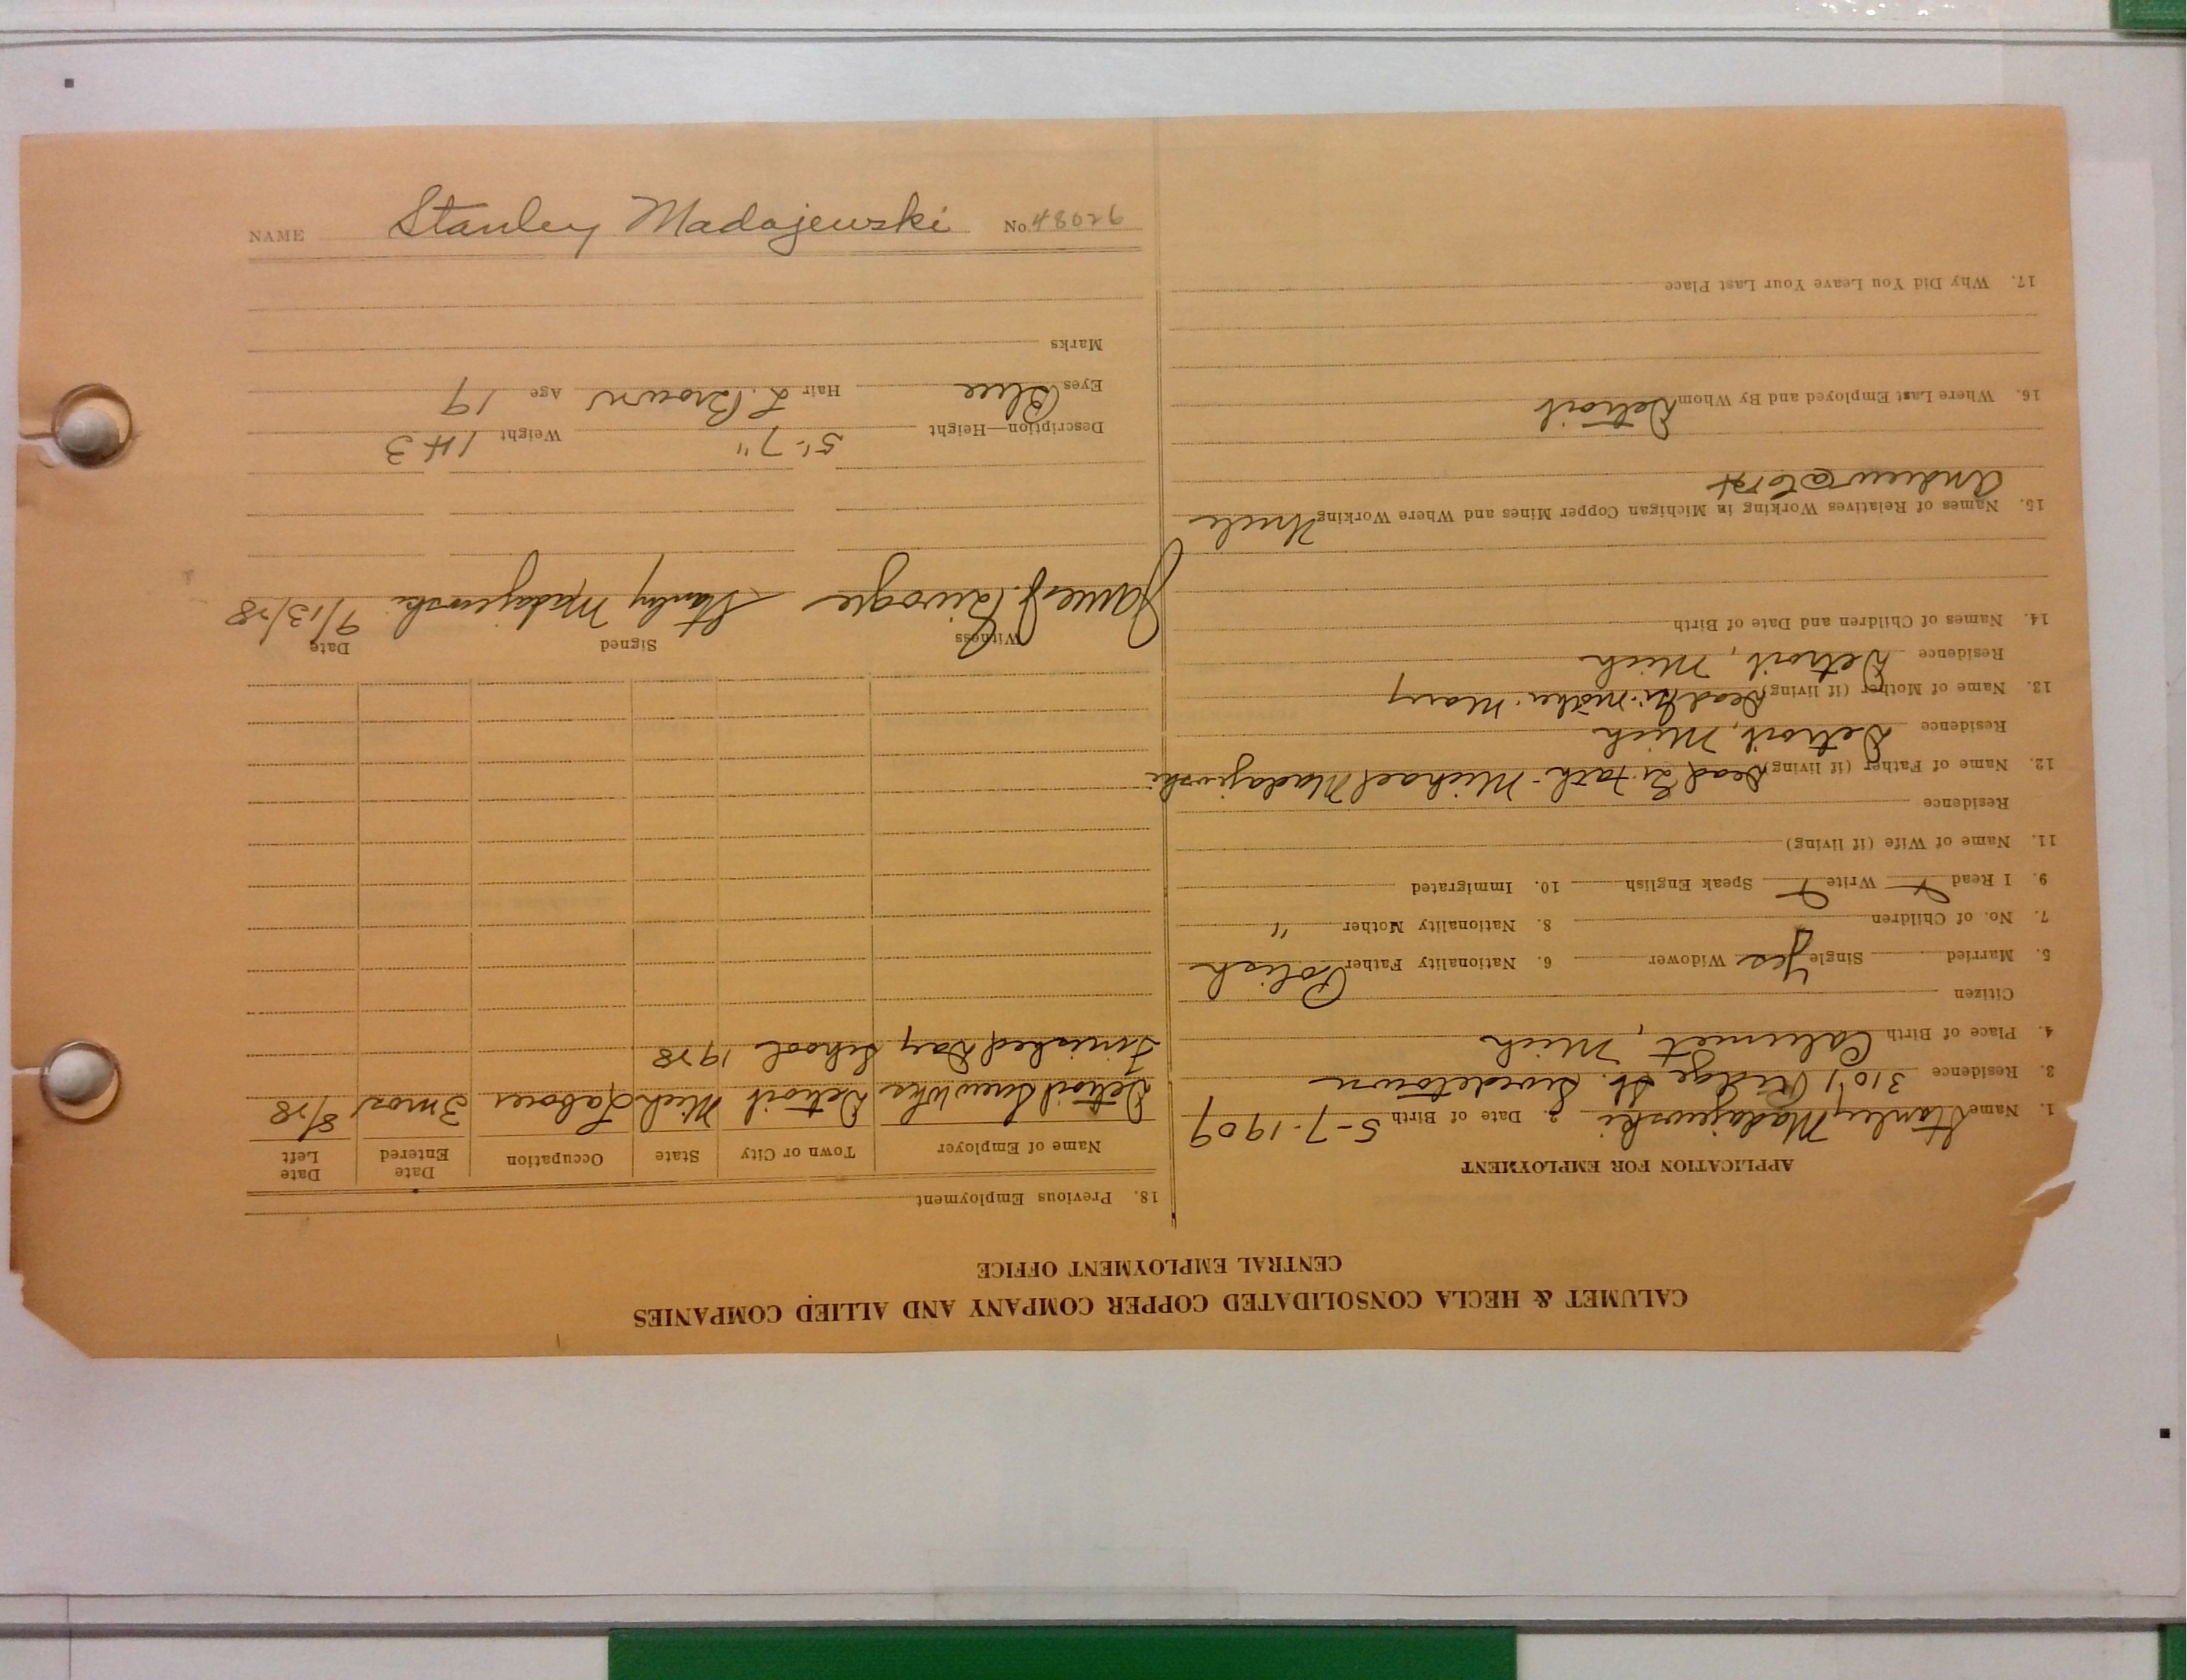 CALUMET & HECLA CONSOLIDATED COPPER COMPANY AND ALLIED COMPANIES
CENTRAL EMPLOYMENT OFFICE
APPLICATION FOR EMPLOYMENT
1. Name Stanley Madajewski 2. Date of Birth 5-7-1909
3. Residence 3101 Ridge St. Swedetown
4. Place of Birth Calumet, Mich
Citizen
5. Married Single Yes Widower 6. Nationality Father Polish
7. No. of Children 8. Nationality Mother "
9. I Read Write Speak English 10. Immigrated
11. Name of Wife (if living)
Residence
12. Name of Father (if living) Dead Michael Madajewski
Residence Detroit, Mich
13. Name of Mother (if living) Dead mother Mary
Residence Detroit, Mich
14. Names of Children and Date of Birth
15. Names of Relatives Working in Michigan Copper Mines and Where Working Uncle
Andrew
16. Where Last Employed and By Whom Detroit
17. Why Did You Leave Your Last Place
18. Previous Employment
Name of Employer Town or City State Occupation Date Entered Date Left
Detroit Screw Wks Detroit Mich Laborer 3 mos 8/28
Finished Day School 1928
Witness Signed Date
James J. Stanley Madajewski 9/13/28
Description—Height 5'-7" Weight 143
Eyes Blue Hair L. Brown Age 19
Marks
NAME Stanley Madajewski No 48026